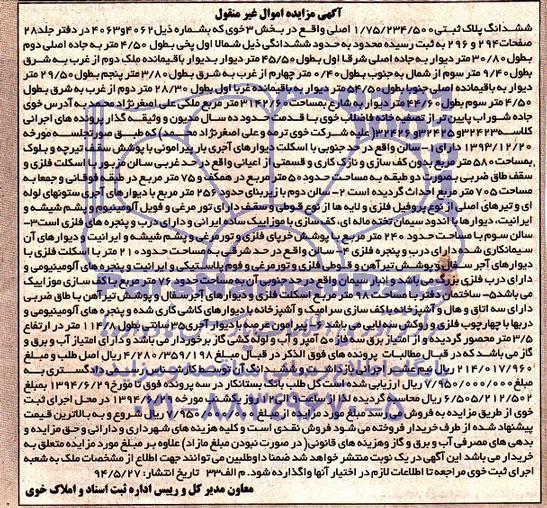 آگهی مزایده اموال غیر منقول
ششدانگ پلاک ثبتی ۱/۷۵/۲۳۴/۵۰۰ اصلی واقع در بخش ۳ خوی که بشماره ذیل ۴۰۶۲ و ۴۰۶۳ در دفتر جلد ۲۸
صفحات ۲۹۴ و ۲۹۶ به ثبت رسیده محدود به حدود ششدانگی ذیل شمالا اول پخی بطول ۴/۵۰ متر به جاده اصلی دوم
بطول ۳۰/۸۰ متر دیوار به جاده اصلی شرقا اول بطول ۴۵/۵۰ متر دیوار بدیوار باقیمانده ملک دوم از غرب به شرق
بطول ۹/۴۰ متر سوم از شمال به جنوب بطول ۰/۴۰ متر چهارم از غرب به شرق بطول ۳/۸۰ متر پنجم بطول ۲۹/۵۰ متر
دیوار به باقیمانده جنوبا بطول ۴۵/۵۰ متر دیوار به باقیمانده غربا اول بطول ۲۸/۳۰ متر دوم از غرب به شرق بطول
۴/۵۰ متر سوم بطول ۴۴/۶۰ متر دیوار به شارع بمساحت ۳۱۴۲/۶۰ متر مربع ملکی علی اصغر نژاد صمد به آدرس خوی
جاده شوراب پایین تر از تصفیه خانه فاضلاب خوی با قدمت حدود ده سال مدیون و وثیقه گذار پرونده های اجرائی
کلاسه ۳۲۴۲۳ و ۳۲۴۲۵ و ۳۲۴۲۶ (علیه شرکت خوی ترمه و علی اصغر نژاد صمد) که طبق صورتجلسه مورخه
۱۳۹۳/۱۲/۲۰ دارای ۱- سالن واقع در حد جنوبی با اسکلت دیوارهای آجری بار پیرامونی با پوشش سقف تیرچه و بلوک
بمساحت ۵۸۰ متر مربع بدون کف سازی و نازک کاری و قسمتی از اعیانی واقع در حد غربی سالن مزبور با اسکلت فلزی و
سقف طاق ضربی بصورت دو طبقه به مساحت حدود ۵۰ متر مربع در همکف و ۷۵ متر مربع در طبقه فوقانی و جمعا به
مساحت ۷۰۵ متر مربع احداث گردیده است ۲- سالن دوم با زیربنای حدود ۲۵۶ متر مربع با دیوارهای آجری ستونهای لوله
ای و تیرهای اصلی از نوع پروفیل فلزی و لایه ها از نوع قوطی و سقف دارای تور مرغی و فویل آلومینیوم و پشم شیشه و
ایرانیت، دیوارها با اندود سیمان تخته ماله ای، کف سازی با موزاییک ساده ایرانی و دارای درب و پنجره های فلزی است ۳-
سالن سوم با مساحت حدود ۲۴۰ متر مربع با پوشش خرپای فلزی و تور مرغی و پشم شیشه و ایرانیت و دیوارهای آن
سیمانکاری شده دارای درب و پنجره فلزی ۴- سالن واقع در حد شرقی به مساحت حدود ۲۱۰ متر با اسکلت فلزی با
دیوارهای آجر سفال و پوشش تیر آهن و قوطی فلزی و تور مرغی و فوم پلاستیکی و ایرانیت و پنجره های آلومینیومی و
دارای درب فلزی بزرگ می باشد و انبار سیمان واقع در حد جنوبی آن به مساحت حدود ۷۶ متر مربع با کف سازی موزاییک
می باشد ۵- ساختمان دفتر با مساحت ۹۸ متر مربع اسکلت فلزی و دیوارهای آجر سفال و پوشش تیر آهن با طاق ضربی
دارای سه اتاق و هال و آشپزخانه با کف سازی سرامیک و آشپزخانه با دیوارهای کاشی کاری شده و پنجره های آلومینیومی و
دربها با چهار چوب فلزی و روکش سه لایی می باشد ۶- پیرامون عرصه با دیوار آجری ۳۵ سانتیمتری بطول ۱۱۴/۸ متر در ارتفاع
۳/۵ متر محصور گردیده و از امتیاز برق سه فاز ۵۰ آمپر و آب و لوله کشی گاز برخوردار می باشد و دارای امتیاز آب و برق و
گاز می باشد که در قبال مطالبات پرونده های فوق الذکر در قبال ۴/۲۸۰/۳۵۹/۱۹۸ ریال اصل طلب و مبلغ
۲۱۴/۰۱۷/۹۶۰ ریال نیم عشر اجرایی بازداشت و ششدانگ آن توسط کارشناس رسمی دادگستری به
مبلغ ۷/۹۵۰/۰۰۰/۰۰۰ ریال ارزیابی شده است کل طلب بانک بستانکار در سه پرونده فوق تا مورخ ۱۳۹۴/۶/۲۹ بمبلغ
۶/۵۰۵/۲۱۲/۵۰۲ ریال محاسبه گردیده لذا از ساعت ۹ الی ۱۲ روز یکشنبه مورخه ۱۳۹۴/ در محل اجرای ثبت
خوی از طریق مزایده به فروش می رسد مبلغ مورد مزایده از مبلغ ۷/۹۵۰/ ریال شروع و به بالاترین قیمت
پیشنهاد شده از طرف خریدار فروخته می شود فروش نقدی است و کلیه هزینه های شهرداری و دارائی و حق مزایده و
بدهی های مصرفی آب و برق و گاز و هزینه های قانونی (در صورت نبودن مبلغ مازاد) علاوه بر مبلغ مورد مزایده متعلق به
خریدار می باشد این آگهی در یک نوبت منتشر خواهد شد ضمنا داوطلبین می توانند جهت اطلاع از مشخصات ملک به شعبه
اجرای ثبت خوی مراجعه تا اطلاعات لازم در اختیار آنها واگذارده شود. م الف ۳۳ تاریخ انتشار: ۹۴/۵/۲۷
معاون مدیر کل و رییس اداره ثبت اسناد و املاک خوی
۰۲۱-۸۸۳۴۹۶۷۰-۵